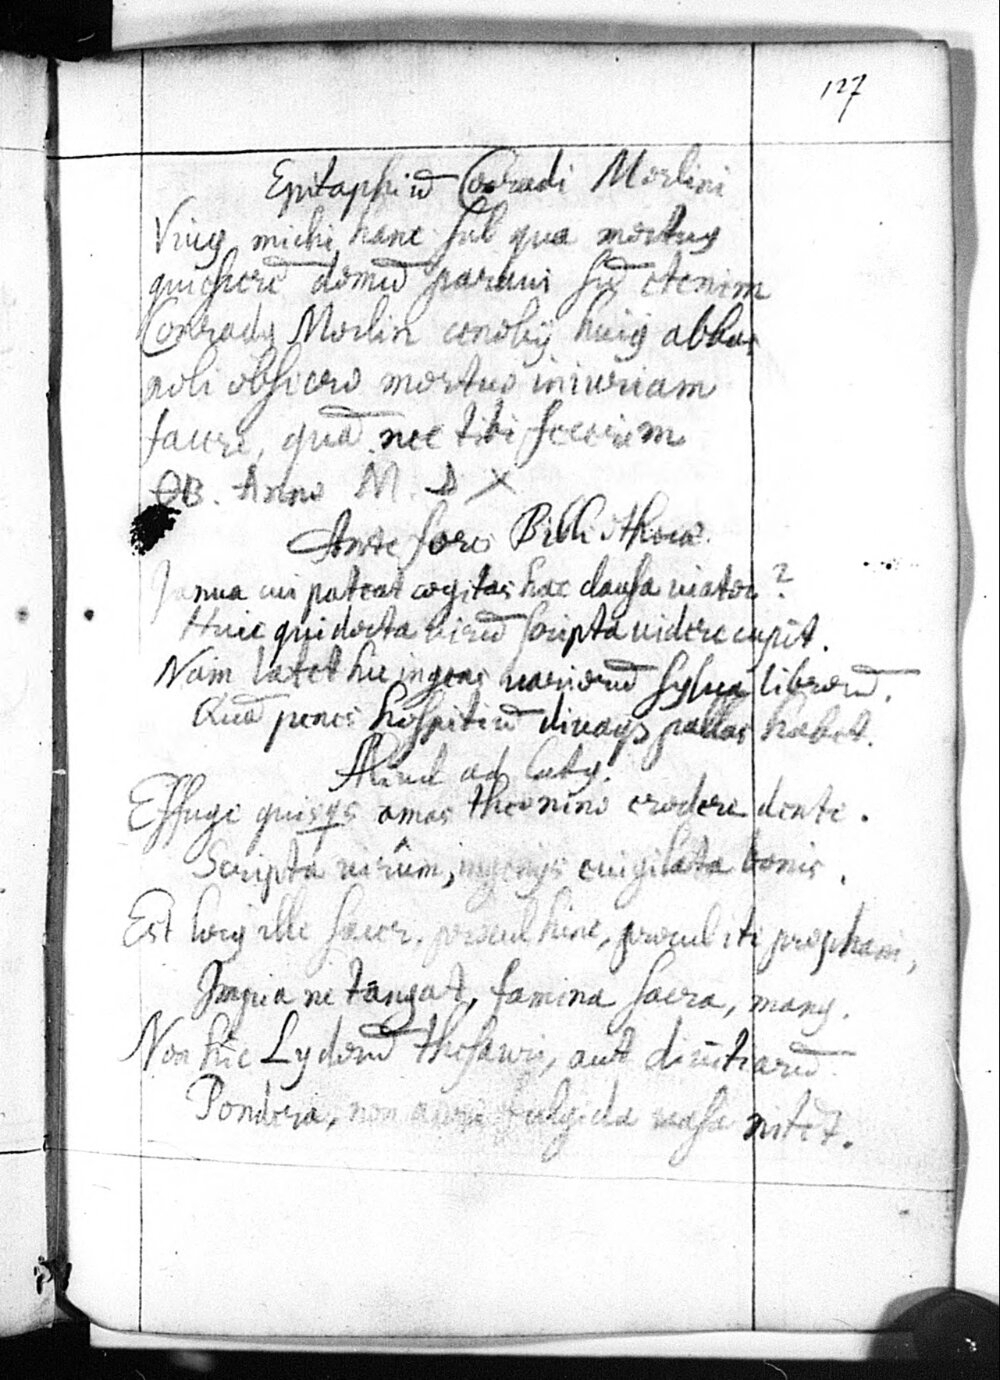 127
Epitaphiū Conradi Morlini
Viuꝯ michi hanc sub qua mortuꝯ
quiescerē domū paraui sū etenim
Conradꝯ Morlin cenobÿ huiꝯ abbas
noli obsicro mortuo iniuriam
facere, quā nec tibi fecerim
OB. Anno M. D X
Ante fores Bibliothecæ.
Janua cui pateat cogitas hæc clausa uiator?
Huic qui docta uirū scripta uidere cupit.
Nam latet hic ingens uariorū sylua librorū.
Quā penes hospitiū diuaqȝ pallas habet.
Aliud ad Intꝯ.
Effuge quisqȝ amas theonino erodere dente.
Scripta uirûm, ingenÿs euigilata bonis.
Est locꝯ ille sacer, procul hinc, procul ite prophani,
Impia ne tangat, famina sacra, manꝯ.
Non hic Lydorū thesauri, aut diuitiarū
Pondera, non auri fulgida uasa nitēt.